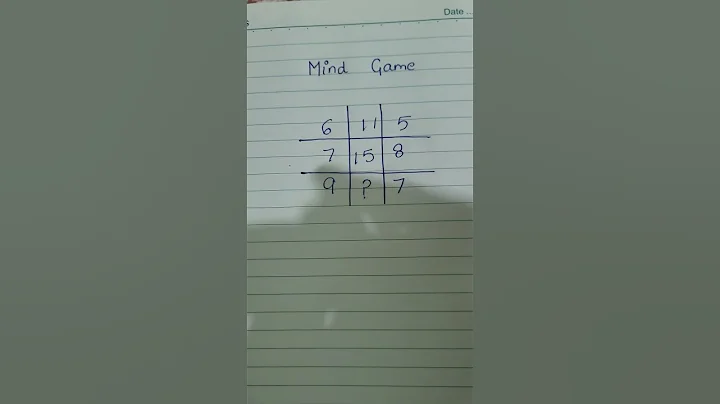 Date ..
Mind Game
6 11 5
7 15 8
9 ? 7